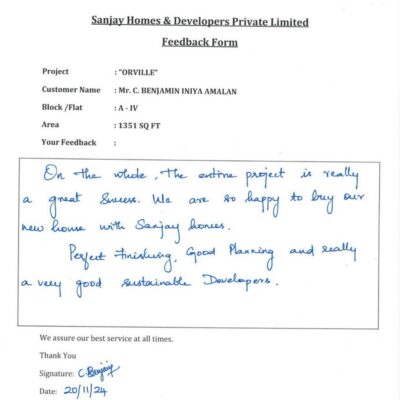 Sanjay Homes & Developers Private Limited
Feedback Form
Project : "ORVILLE"
Customer Name : Mr. C. BENJAMIN INIYA AMALAN
Block /Flat : A - IV
Area : 1351 SQ FT
Your Feedback :
On the whole, The entire project is really
a great Success. We are so happy to buy our
new house with Sanjay homes.
Perfect Finishing, Good Planning and really
a very good sustainable Developers.
We assure our best service at all times.
Thank You
Signature: C. Benjamin
Date: 20/11/24